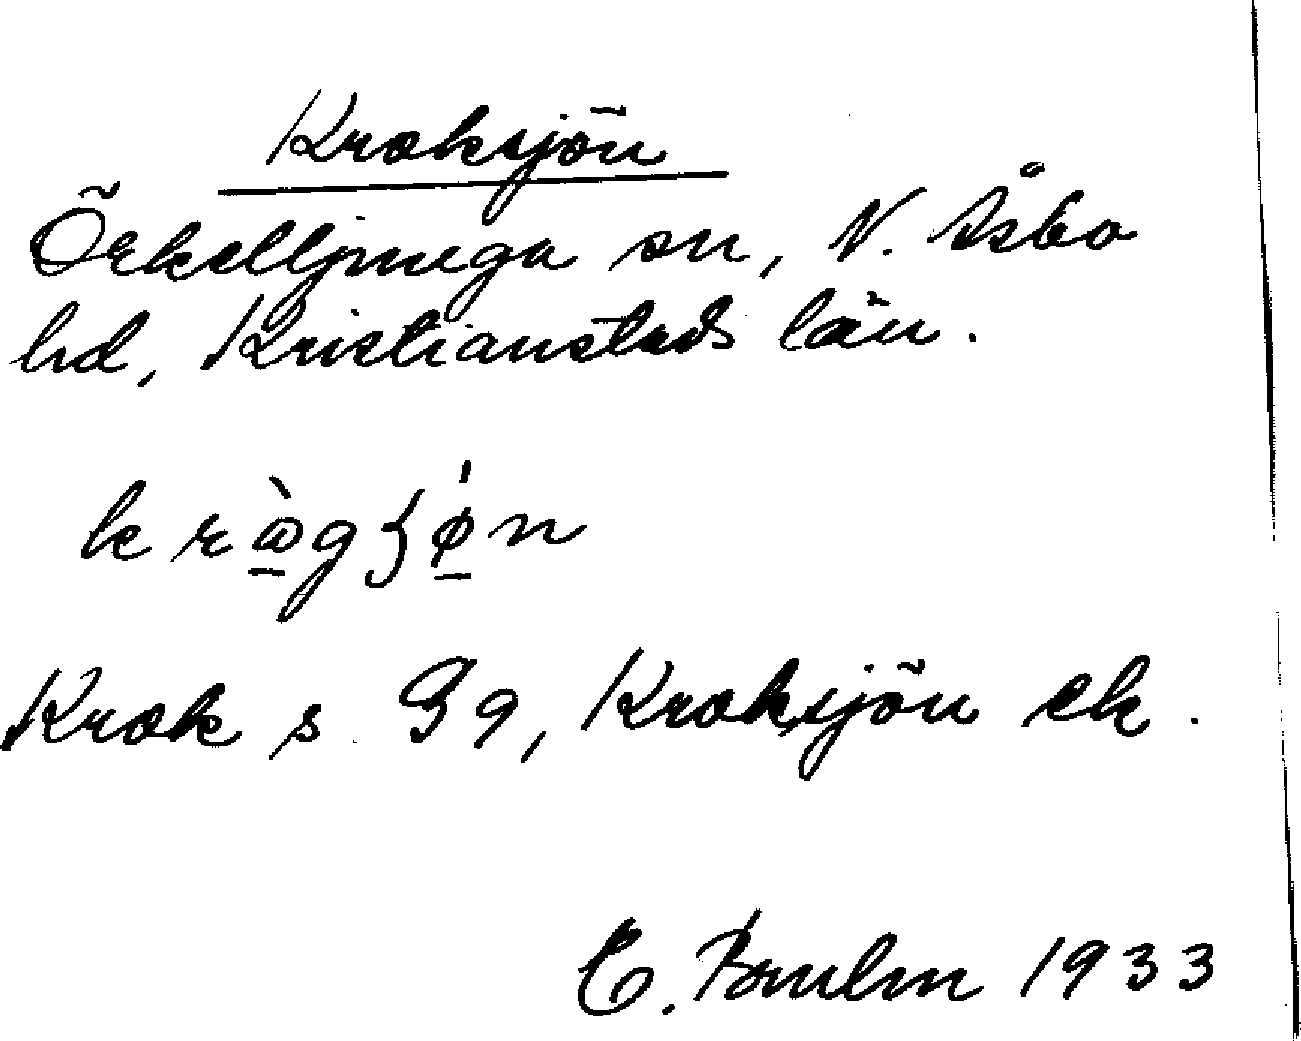 Kroksjön
Örkelljunga sn, N. Åsbo
hd, Kristianstads län.
kràgʒø̀n
Krok s G9, Kroksjön ek.
E. 1933